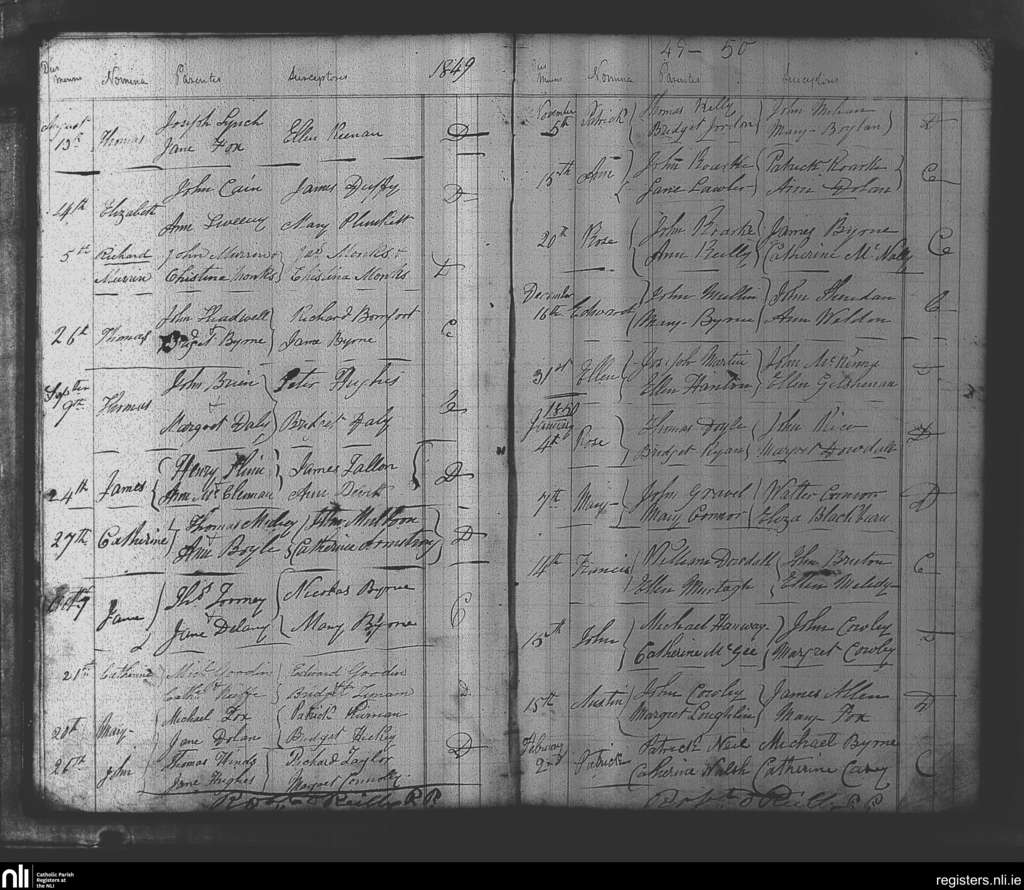 Dies mensis Nomina Parentes Susceptores 1849
August 13th Thomas Joseph Lynch Ellen Keenan D
Jane Fox
14th Elizabeth John Cain James Duffy D
Ann Sweeny Mary Plunkett
5th Richard John Murrin Jas Monks
Murrin Christina Monks Christina Monks
26th Thomas John Headwell Richard Bomfort C
Bridget Byrne Jane Byrne
9th Thomas John Brien Peter Hughes
Margret Daly Bridget Daly
24th James Henry James Fallon D
Ann Mc Ann
27th Catherine Thomas John Muldoon D
Ann Boyle Catherine Armstrong
Jane Thos Tormey Nicolas Byrne C
Jane Delany Mary Byrne
21st Catherine Michl Goodin Edward Goodin
Bridget Lynam
20th Mary Michael Fox Patrick
Jane Dolan Bridget Hickey D
26th John Thomas Hinds Richard Taylor
Jane Hughes Margret Connolly
O Reilly P.P.
49 - 50
Dies mensis Nomina Parentes Susceptores
November 5th Patrick Thomas Kelly John
Bridget Jordon Mary Boylan
15th Ann John Rourke Patrick Rourke C
Jane Lawler Ann Dolan
20th Rose John Rourke James Byrne C
Ann Reilly Catherine Mc Nally
December 16th Edward John Mullin John Sheridan C
Mary Byrne Ann Weldon
31st Ellen Joseph Martin John McKenny
Ellen Hanlon Ellen
1850
January 4th Rose Thomas Doyle John Rice D
Bridget Ryan Margret Dowdall
7th Mary John Walter Connor D
Mary Connor Eliza Blackburn
14th Francis William Dowdall John Bruton C
Ellen Murtagh Ellen
15th John Michael Hanway John Cowley
Catherine McGee Margret Cowley
15th Austin John Cowley James Allen D
Margret Loughlin Mary Fox
February 2nd Patrick Patrick Neil Michael Byrne C
Catherine Walsh Catherine Casey
O Reilly P.P.
nli Catholic Parish
Registers at
the NLI
registers.nli.ie